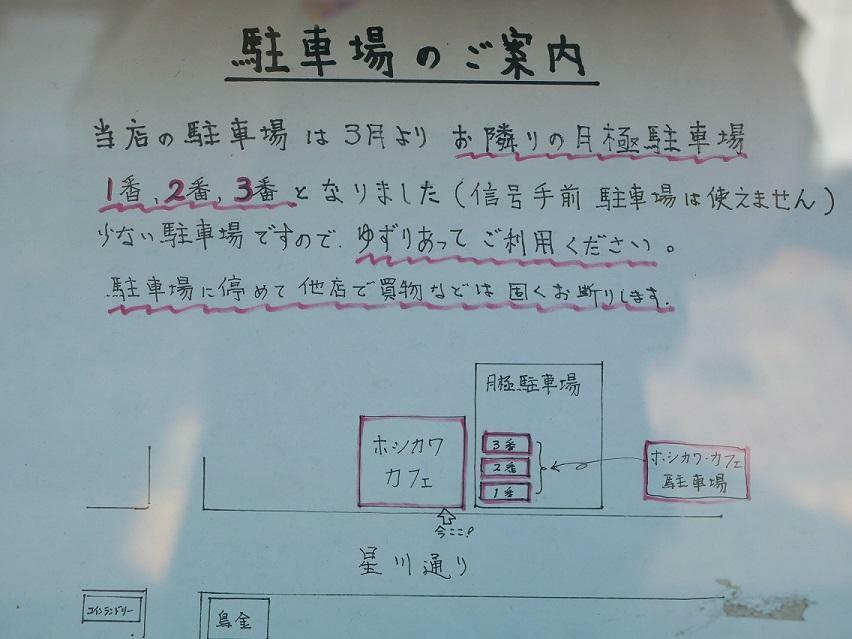 駐車場のご案内
当店の駐車場は3月より お隣りの月極駐車場
1番,2番,3番となりました(信号手前 駐車場は使えません)
少ない駐車場ですので、ゆずりあってご利用ください。
駐車場に停めて他店で買物などは固くお断りします.
月極駐車場
3番
2番
1番
ホシカワ
カフェ
ホシカワ・カフェ
駐車場
今ここ!
星川通り
コインランドリー
鳥金